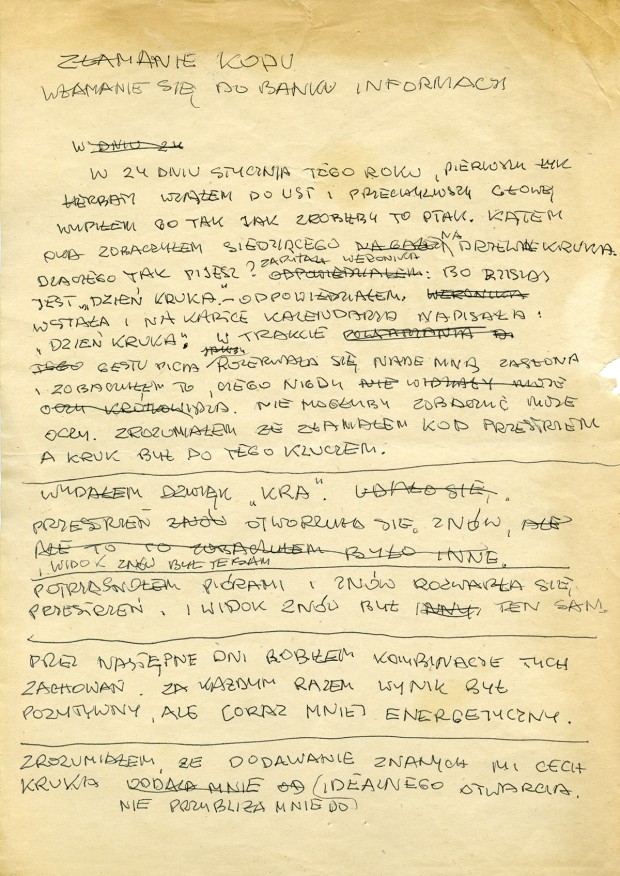 ZŁAMANIE KODU
WŁAMANIE SIĘ DO BANKU INFORMACJI
W DNIU 24
W 24 DNIU STYCZNIA TEGO ROKU, PIERWSZY ŁYK
HERBATY WZIĄŁEM DO UST I PRZECHYLIWSZY GŁOWĘ
WYPIŁEM GO TAK JAK ZROBIŁBY TO PTAK. KĄTEM
OKA ZOBACZYŁEM SIEDZĄCEGO NA GAŁĘZI NA DRZEWIE KRUKA.
DLACZEGO TAK PIJESZ? ZAPYTAŁA WERONIKA ODPOWIEDZIAŁEM: BO DZISIAJ
JEST "DZIEŃ KRUKA." - ODPOWIEDZIAŁEM. WERONIKA
WSTAŁA I NA KARTCE KALENDARZA NAPISAŁA:
"DZIEŃ KRUKA". W TRAKCIE POWTARZANIA
TEGO GESTU PICIA JAKBY ROZERWAŁA SIĘ NADE MNĄ ZASŁONA
I ZOBACZYŁEM TO, CZEGO NIGDY NIE WIDZIAŁY MOJE
OCZY KRÓTKOWIDZA. NIE MOGŁYBY ZOBACZYĆ MOJE
OCZY. ZROZUMIAŁEM ŻE ZŁAMAŁEM KOD PRZESTRZENI
A KRUK BYŁ DO TEGO KLUCZEM.
WYDAŁEM DŹWIĘK "KRA". UDAŁO SIĘ.
PRZESTRZEŃ ZNÓW OTWORZYŁA SIĘ ZNÓW, ALE
ALE TO CO ZOBACZYŁEM BYŁO INNE.
I WIDOK ZNÓW BYŁ TEN SAM
POTRZĄSNĄŁEM PIÓRAMI I ZNÓW ROZWARŁA SIĘ
PRZESTRZEŃ. I WIDOK ZNÓW BYŁ INNY, TEN SAM.
PRZEZ NASTĘPNE DNI ROBIŁEM KOMBINACJE TYCH
ZACHOWAŃ. ZA KAŻDYM RAZEM WYNIK BYŁ
POZYTYWNY, ALE CORAZ MNIEJ ENERGETYCZNY.
ZROZUMIAŁEM, ŻE DODAWANIE ZNANYCH MI CECH
KRUKA ODDALA MNIE OD (IDEALNEGO OTWARCIA.
NIE PRZYBLIŻA MNIE DO)